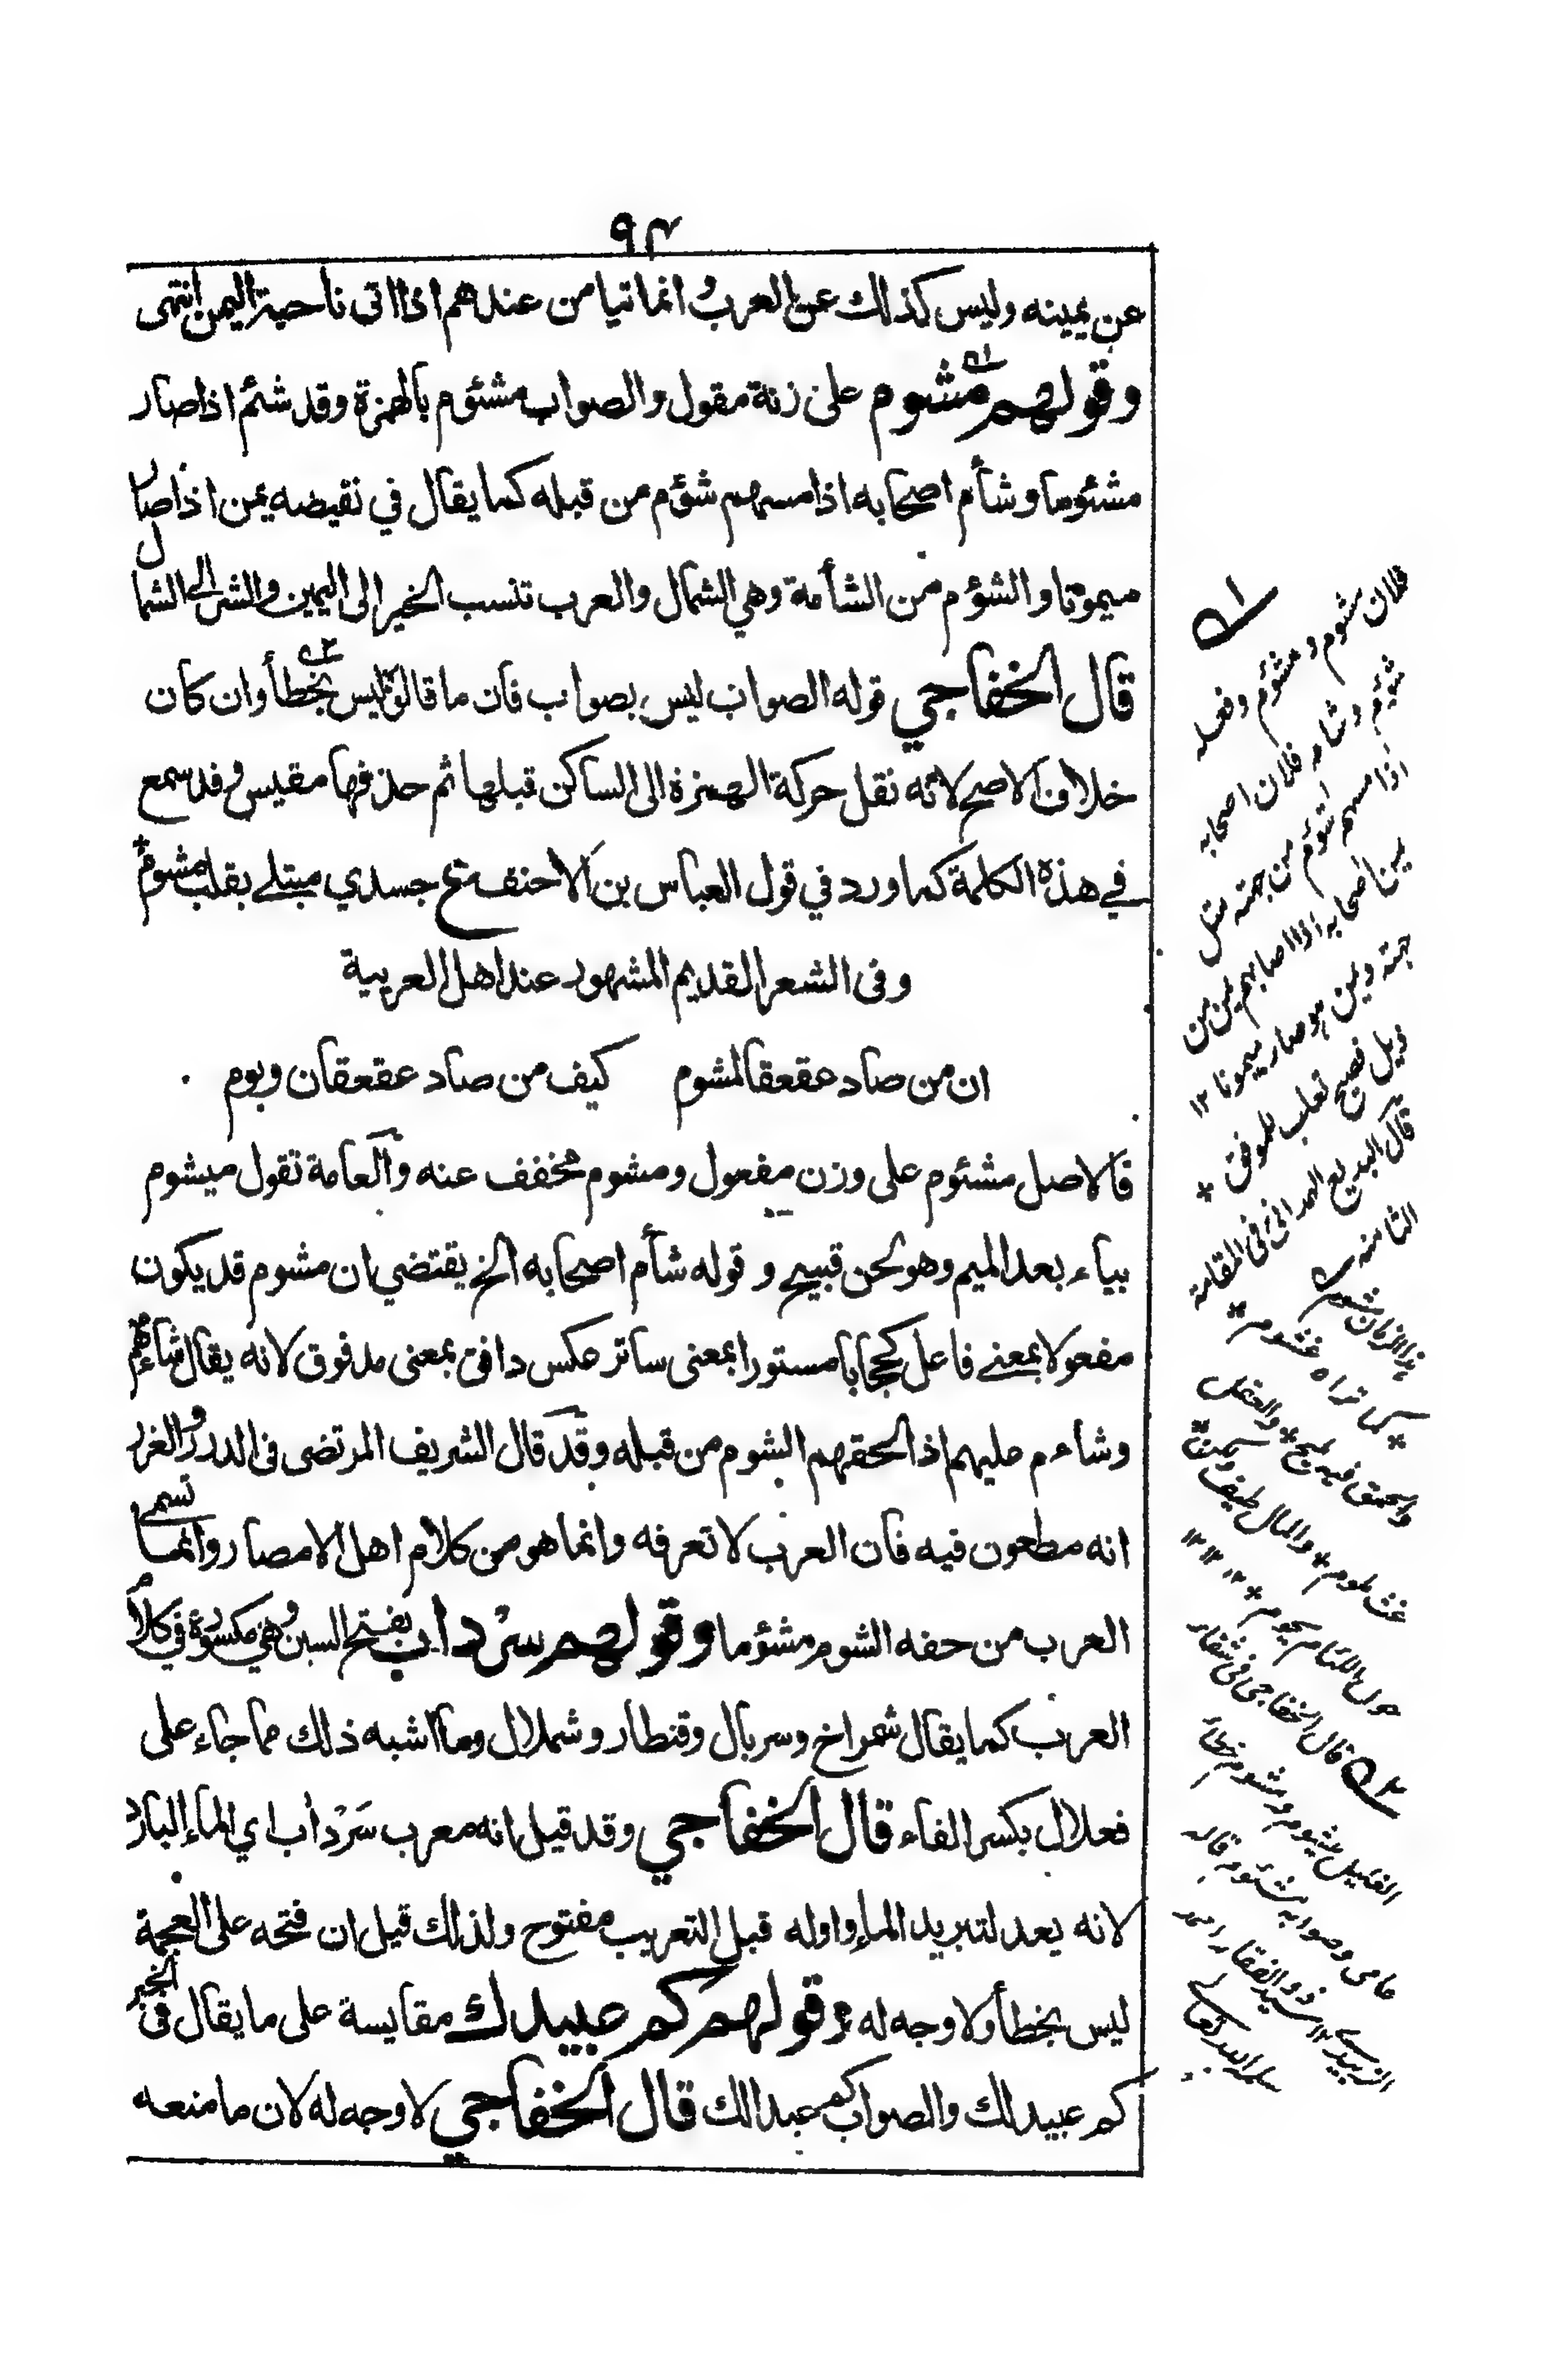 ٩٤
عن يمينه وليس كذلك عن العرب وانما تيامن عندهم اذا اتى ناحية اليمن انتهى
وقولهم مشوم على زنة مقول والصواب مشئوم بالهمزة وقد شئم اذا صار
مشئوما وشأم اصحابه اذا مسهم شؤم من قبله كما يقال في نقيضه يمن اذا صار
ميمونا والشؤم من الشأمة وهي الشمال والعرب تنسب الخير الى اليمين والشر الى الشمال
قال الخفاجي قوله الصواب ليس بصواب فان ما قالوه ليس بخطأ وان كان
خلاف الاصح لانه نقل حركة الهمزة الى الساكن قبلها ثم حذفها مقيس وقد سمع
في هذه الكلمة كما ورد في قول العباس بن الاحنف ع جسدي مبتلے بقلب مشوم
وفى الشعر القديم المشهور عند اهل العربية
ان من صاد عقعقا لمشوم كيف من صاد عقعقان وبوم
فالاصل مشئوم على وزن مفعول ومشوم مخفف عنه والعامة تقول ميشوم
بياء بعد الميم وهو لحن قبيح و قوله شأم اصحابه الخ يقتضي ان مشوم قد يكون
مفعولا بمعنے فاعل كحجابا مستورا بمعنى ساتر عكس دافق بمعنى مدفوق لانه يقال شاءهم
وشاءم عليهم اذا لحقهم الشوم من قبله وقد قال الشريف المرتضى فى الدرر والغرر
انه مطعون فيه فان العرب لا تعرفه وانما هو من كلام اهل الامصار وانما تسمى
العرب من حفه الشوم مشؤما وقولهم سرداب بفتح السين وهي مكسورة في كلام
العرب كما يقال شمراخ وسربال وقنطار وشملال وما اشبه ذلك مما جاء على
فعلال بكسر الفاء قال الخفاجي وقد قيل انه معرب سَرْد أب اي الماء البارد
لانه يعد لتبريد الماء واوله قبل التعريب مفتوح ولذلك قيل ان فتحه على العجمة
ليس بخطأ ولا وجه له وقولهم كم عبيدك مقايسة على ما يقال فى الخبر
كم عبيد لك والصواب كم عبدا لك قال الخفاجي لا وجه له لان ما منعه
فلان مشوم ومشئوم وفعله
شئوم وشأمه فلان اصحابه
اذا مسهم شؤم من جهته مثل
يمينا اصحابه اذا اصابهم يمن من
جهته ويمن هو صار ميمونا ١٢
ذيل فصيح ثعلب للموفق
قال البديع الهمدانى فى المقامة
الثامنة
هذا الزمان مشوم
كما تراه غشوم
والحمق فيه مليح والعقل
والمال طيف ولكن
حول اللئام يحوم ١٢
٥٢ قال الخفاجى فى شفاء
الغليل ميشوم ومشوم خطأ
عامى وصوابه مشئوم قاله
الزبيدى ١٢ سيد ذو الفقار احمد
سلمه الله تعالى